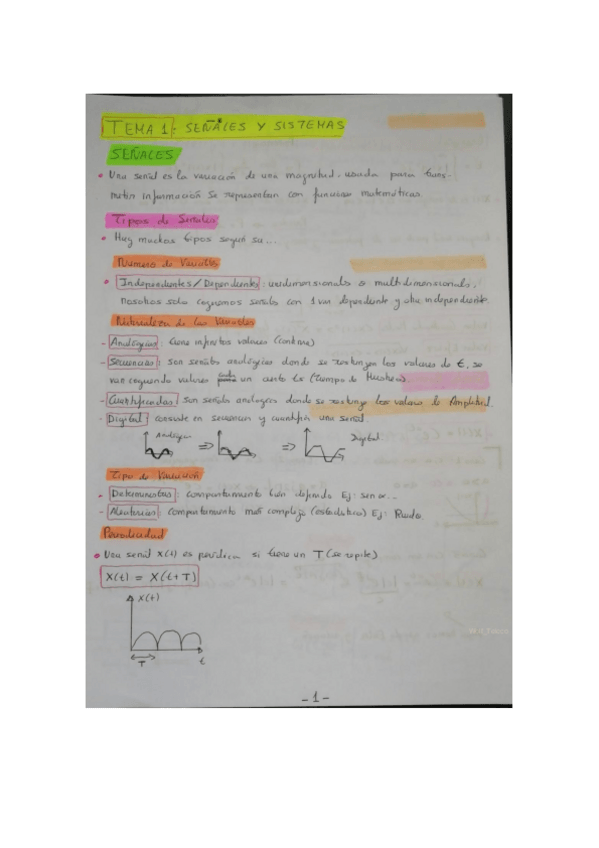 TEMA 1: SEÑALES Y SISTEMAS
SEÑALES
• Una señal es la variación de una magnitud, usada para trans-
mitir información Se representan con funciones matemáticas.
Tipos de Señales
• Hay muchos tipos según su...
Número de Variables
• Independientes / Dependientes: unidimensionales o multidimensionales.
nosotros solo cogeremos señales con 1 var. dependiente y otra independiente.
Naturaleza de las Variables
- Analógicas: tiene infinitos valores (continua)
- Secuencias: son señales analógicas donde se restringen los valores de t, se
van cogiendo valores cada un cierto ts (tiempo de Muestreo).
- Cuantificadas: son señales analógicas donde se restringe los valores de Amplitud.
- Digital: consiste en secuenciar y cuantificar una señal.
Analógica ⇒ ⇒ Digital
Tipo de Variación
• Deterministas: comportamiento bien definido Ej: seno...
- Aleatorias: comportamiento más complejo (estadística) Ej: Ruido.
Periodicidad
• Una señal x(t) es periódica si tiene un T (se repite)
X(t) = X(t+T)
X(t)
T t
- 1 -